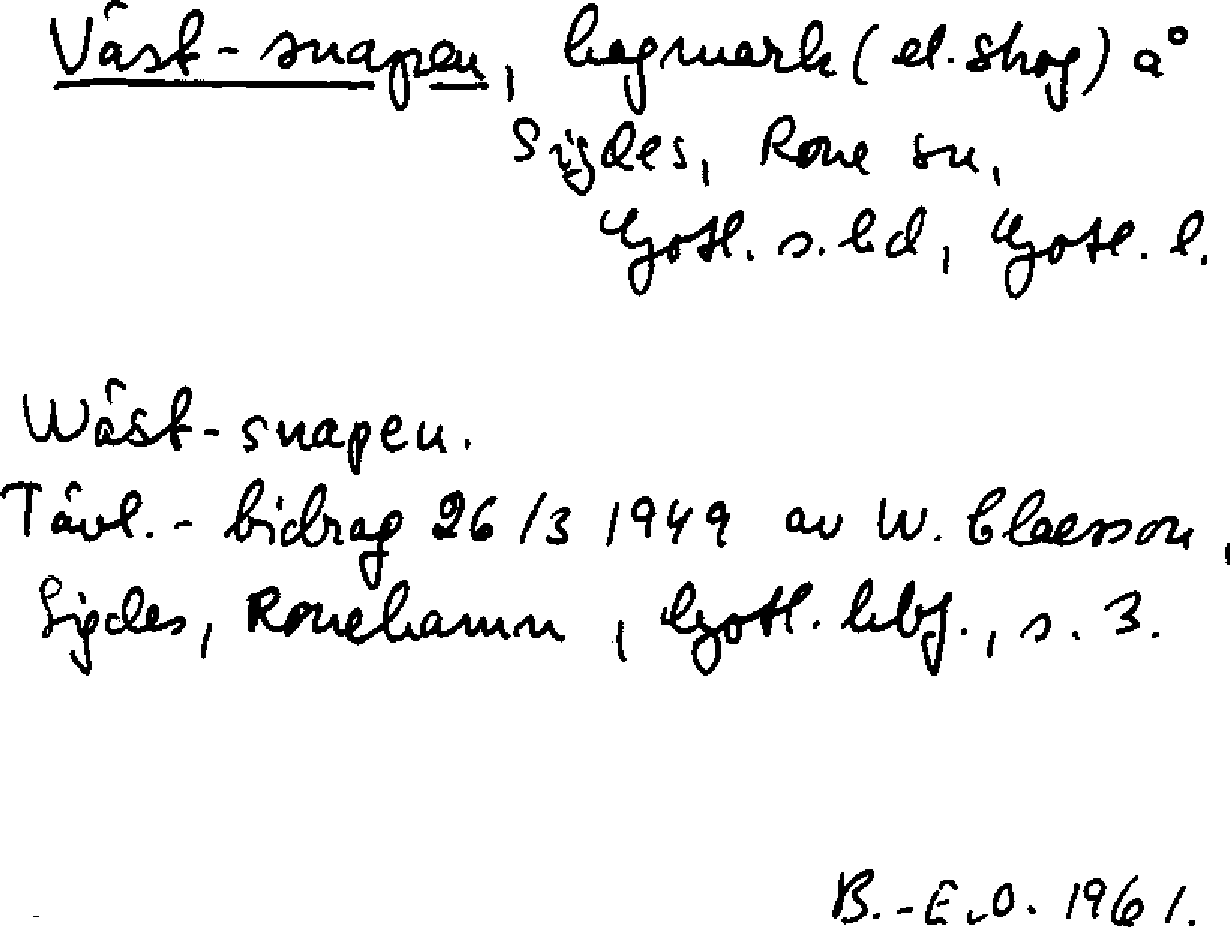 Väst-snapen, hagmark (el. skog) å
Sigdes, Rone sn,
Gotl. s. hd, Gotl. l.
Wäst-snapen.
Tävl.-bidrag 26/3 1949 av W. Claesson,
Sigdes, Ronehamn, Gotl. hbf., s. 3.
B.-E.O. 1961.